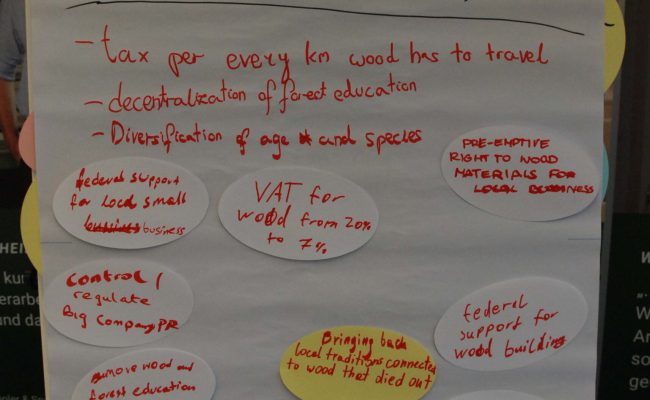 - tax per every km wood has to travel
- decentralization of forest education
- Diversification of age and species
PRE-EMPTIVE
RIGHT TO WOOD
MATERIALS FOR
LOCAL
federal support
for local small
business
VAT for
wood from 20%
to 7%
control /
regulate
Big Company PR
federal
support for
wood building
Bringing back
local traditions connected
to wood that died out
wood and
forest education
HEI
kur
erarbe
und da
W
W
An
so
ge